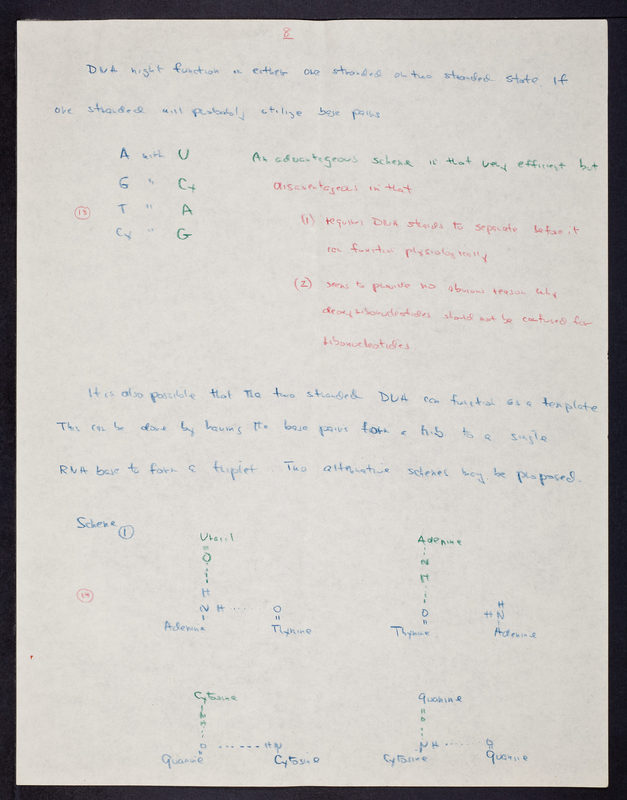 8
DNA might function in either one stranded or two stranded state If
one stranded will probably utilize base pairs
A with U
G " Cy
T " A
Cy " G
13
An advantageous scheme in that very efficient but
disavantageous in that
(1) requires DNA strands to separate before it
can function physiologically
(2) seems to provide no obvious reason why
deoxyribonucleotides should not be confused for
ribonucleotides
It is also possible that the two stranded DNA can function as a template
This can be done by having the base pairs form a hib to a single
RNA base to form a triplet Two alternative schemes may be proposed.
Scheme 1
14
Uracil
O
H
N H ..... O
Adenine Thymine
Adenine
N
H
O
Thymine
H
H N
Adenine
Cytosine
N
H
O ----- HN
Guanine Cytosine
Guanine
O
N H ..... O
Cytosine Guanine